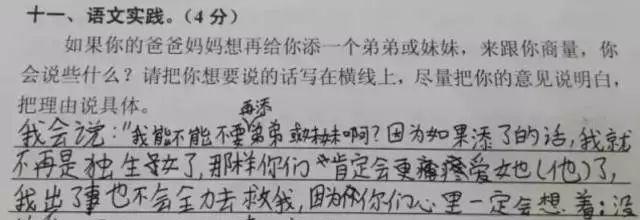 十一、语文实践。(4分)
如果你的爸爸妈妈想再给你添一个弟弟或妹妹，来跟你商量，你
会说些什么？请把你想要说的话写在横线上，尽量把你的意见说明白，
把理由说具体。
再添
我会说："我能不能不要弟弟或妹妹啊？因为如果添了的话，我就
不再是独生子女了，那样你们肯定会更疼爱她(他)了，
我出了事也不会全力去救我，因为你们心里一定会想着：没